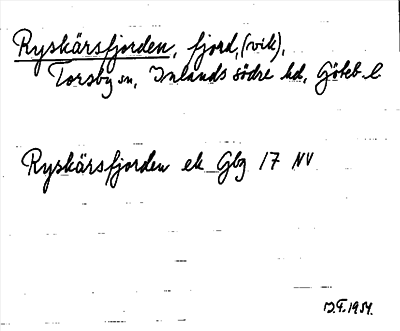 Ryskärsfjorden, fjord, (vik),
Torsby sn, Inlands södre hd, Göteb. l
Ryskärsfjorden ek Gbg 17 NV
1954.